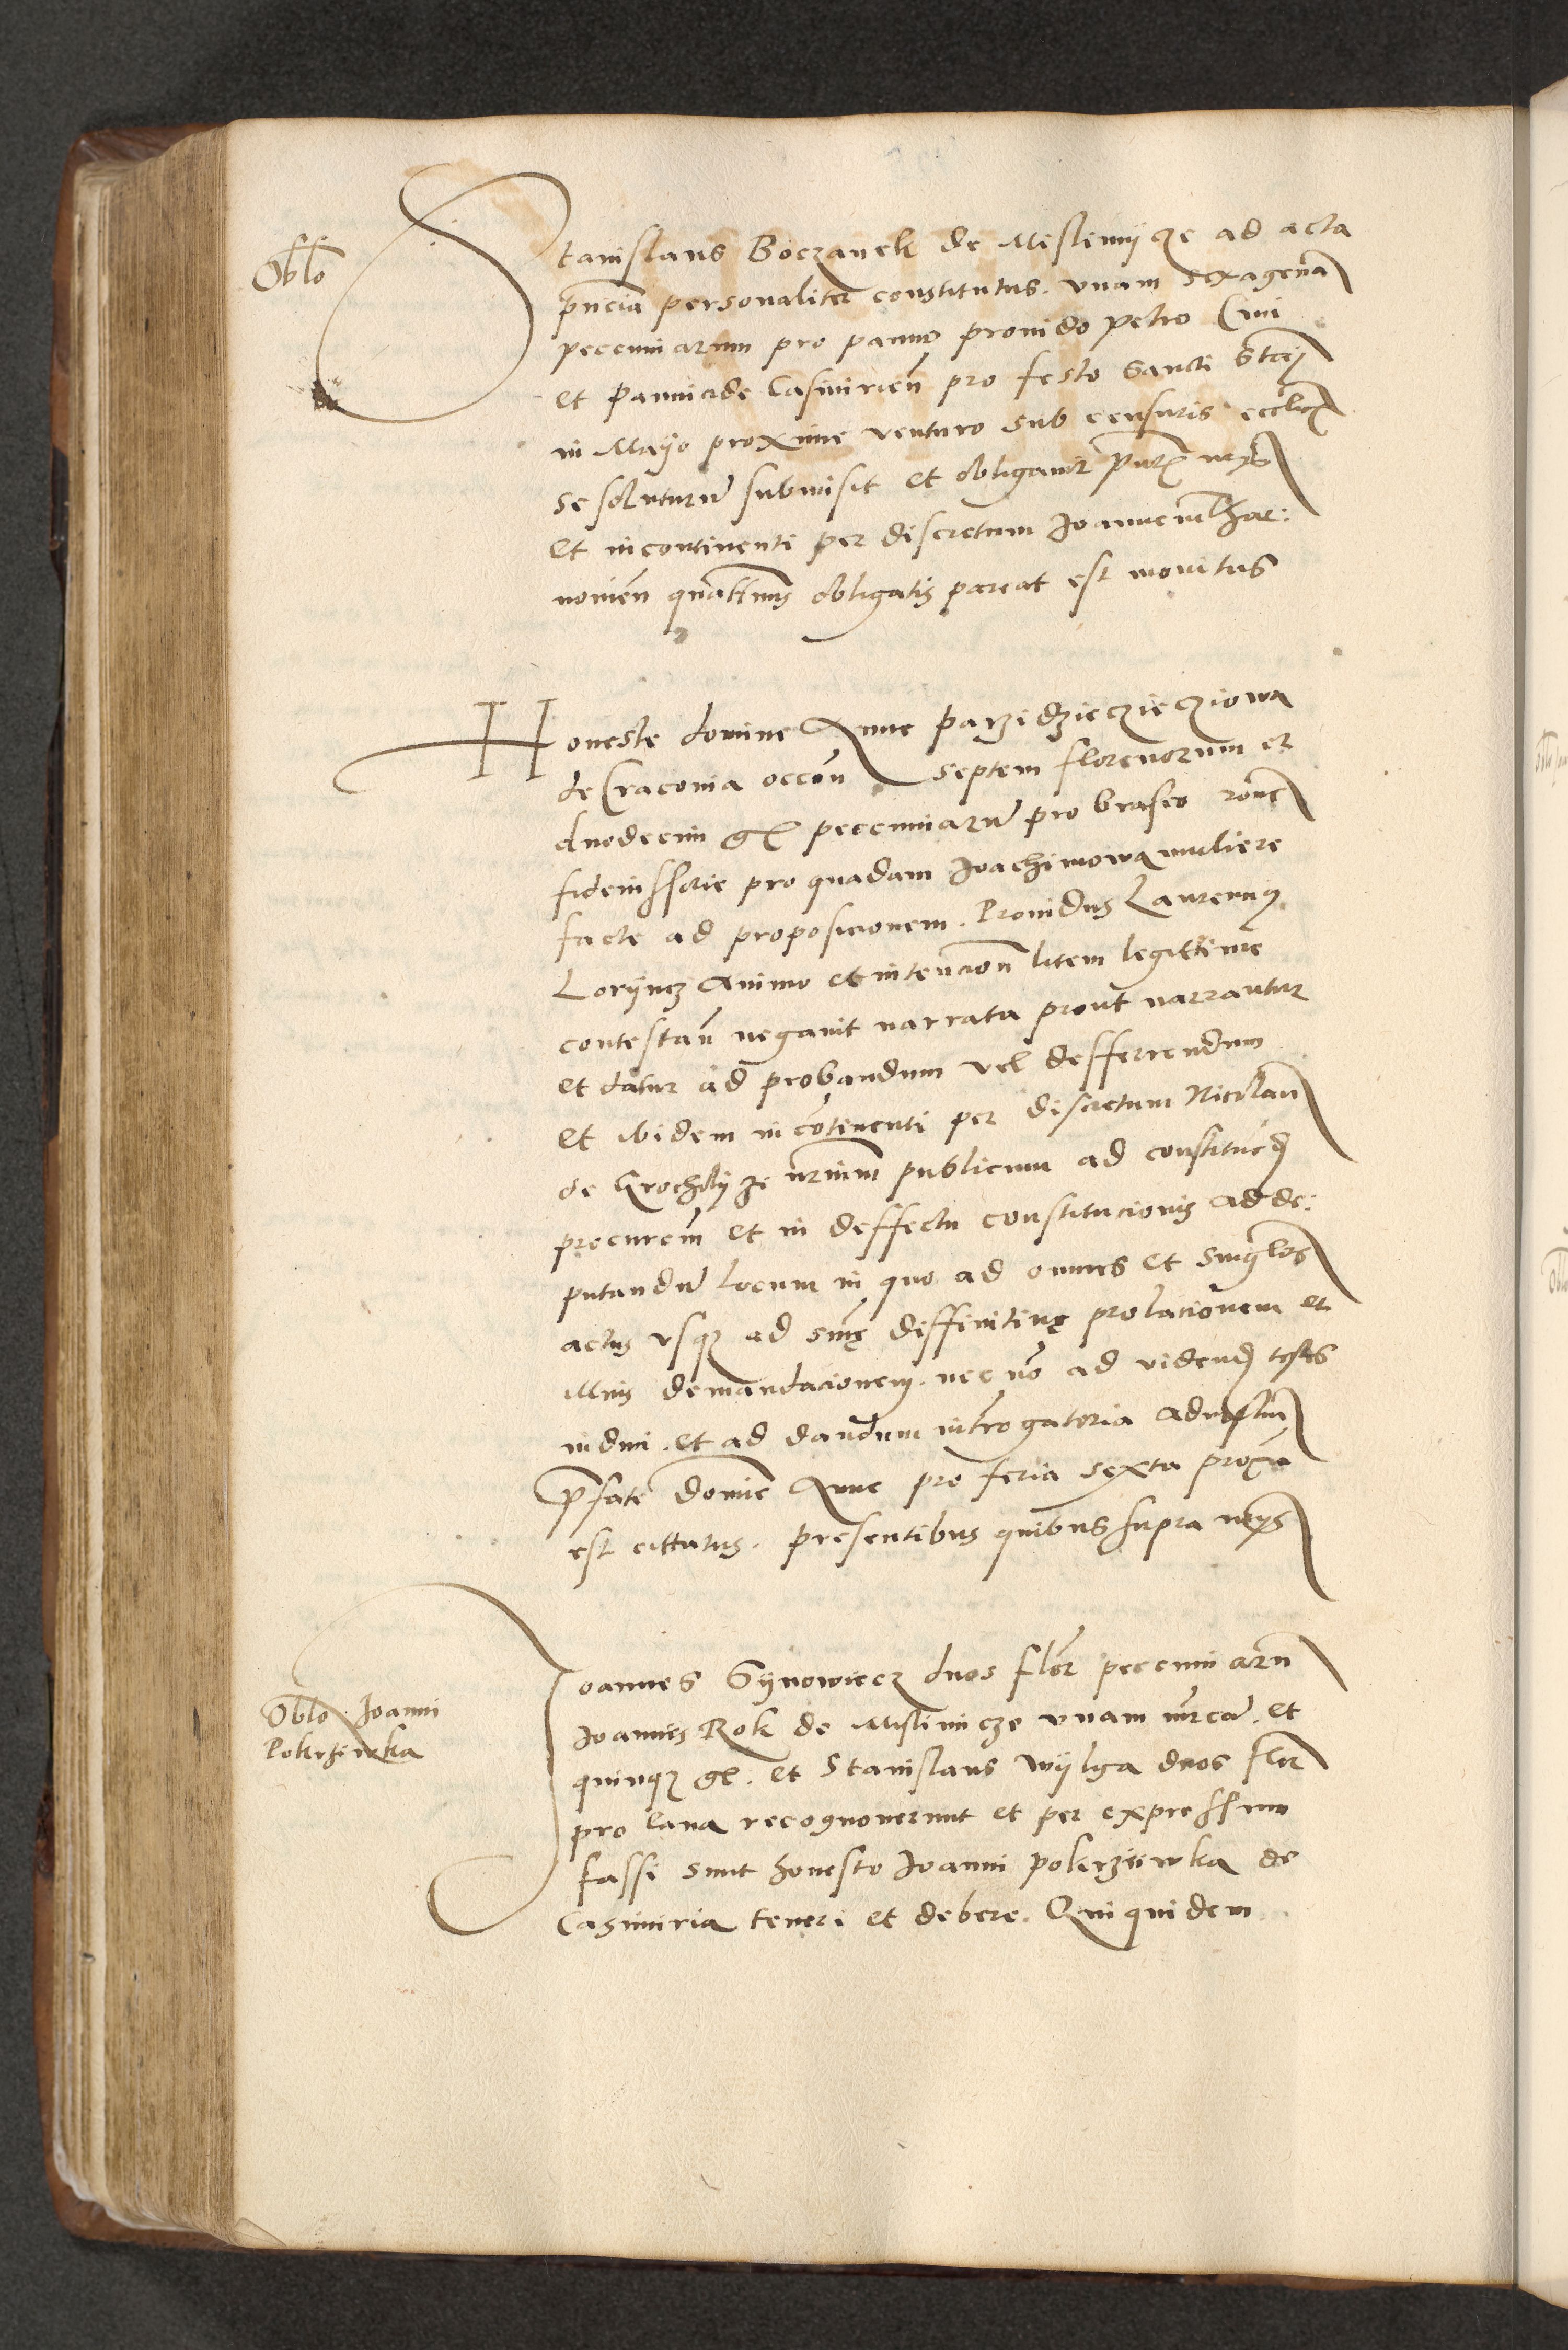 Oblo
Stanislaus Boczanek de Mislimijcze ad acta
pn̄cia personaliter constitutus. vnam sexagenā
pecuniarum pro panno prouido Petro Ciui
et pannicide Casimirien̄ pro festo Sancti Stan̄
in Maijo proxime venturo sub censuris ecclicis
se soluturū submisit et obligauit
et incontinenti per discretum Joannem Thar:
nouien̄ quattenus obligatis pareat est monitus
Honeste domine Anne Parzidzieczieczīowa
de Craconia occōn septem florenorum et
duodecim gr̄ pecuniarū pro braseo rōne
fideiussorie pro quadam Joachimowa muliere
facte ad proposicionem. Prouidus Laurencius
Lorijncz Animo et intencōn litem legittime
contestan̄ negauit narrata prout narrantur
et datur ad probandum vel defferrendum
et ibidem incōtinenti per discretum Nicolaū
de Grocholijcze nrium publicum ad constituēd
procurem̄ et in deffectu constitucionis ad de:
putandū locum in quo ad omnes et singlos
actus vsq₃ ad snīę diffinitiuę prolacionem et
illius demandacionem. nec nō ad videnđ testes
induci. et ad dandum intrrogatoria ad instan̄
p̄fate domīe Anne pro feria sexta proxīa
est cittatus. presentibus quibus supra
Oblo Joanni
Pokrziwka
Joannes Synowiecz duos flor̄ pecuniarū
Joannes Rok de Mislimicze vnam mrcā. et
quinq₃ gr. et Stanislaus Wijlga duos flor̄
pro lana recognouerunt et per expressum
fassi sunt honesto Joanni Pokrziiwka de
Casimiria teneri et debere. Quiquidem